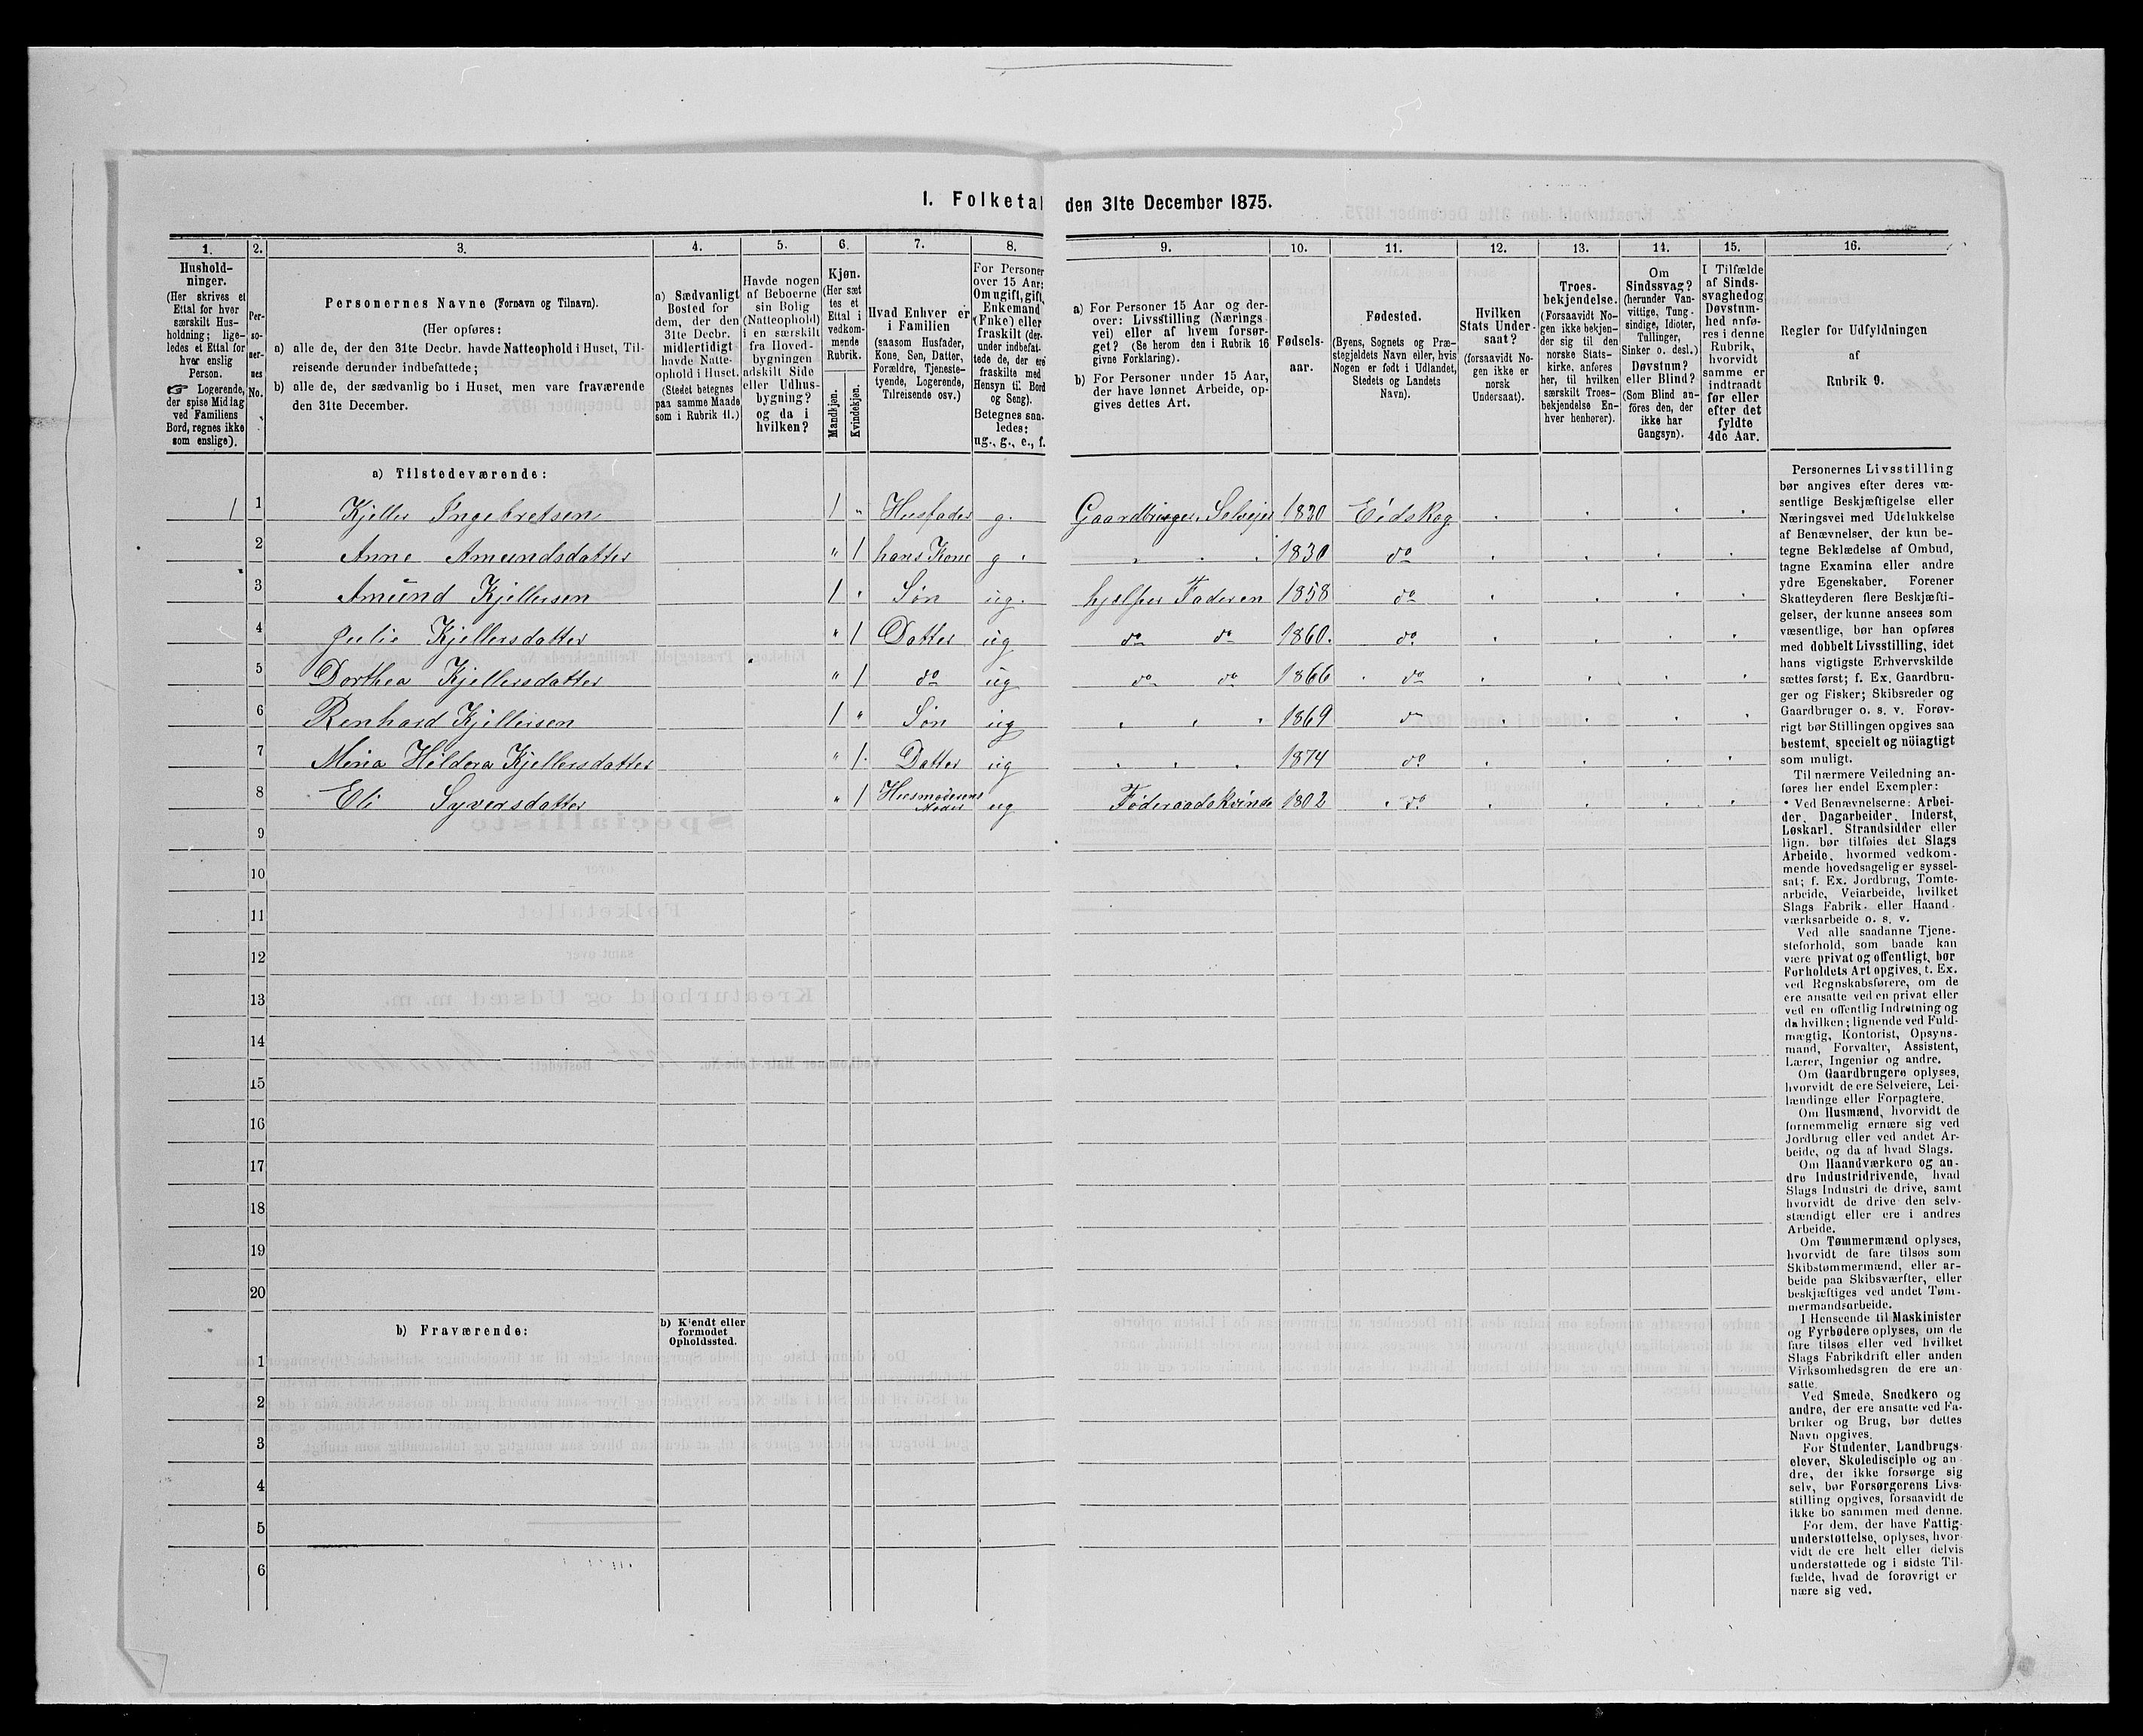 1. Folketal den 31te December 1875.
1. 2. 3. 4. 5. 6. 7. 8. 9. 10. 11. 12. 13. 14. 15. 16.
Hushold-
ninger.
(Her skrives et
Ettal for hver
særskilt Hus-
holdning; lige-
ledes et Ettal for
hver enslig
Person.
☞ Logerende,
der spise Middag
ved Familiens
Bord, regnes ikke
som enslige).
Per-
so-
ner-
nes
No.
Personernes Navne (Fornavn og Tilnavn).
(Her opføres:
a) alle de, der den 31te Decbr. havde Natteophold i Huset, Til-
reisende derunder indbefattede;
b) alle de, der sædvanlig bo i Huset, men vare fraværende
den 31te December.
a) Sædvanligt
Bosted for
dem, der den
31te Decbr.
midlertidigt
havde Natte-
ophold i Huset.
(Stedet betegnes
paa samme Maade
som i Rubrik 11.)
Havde nogen
af Beboerne
sin Bolig
(Natteophold)
i en særskilt
fra Hoved-
bygningen
adskilt Side
eller Udhus-
bygning?
og da i
hvilken?
Kjøn.
(Her sæt
tes et
Ettal i
vedkom-
mende
Rubrik.
Mandkjøn.
Kvindekjøn.
Hvad Enhver er
i Familien
(saasom Husfader,
Kone, Søn, Datter,
Forældre, Tjeneste-
tyende, Logerende,
Tilreisende osv.)
For Personer
over 15 Aar:
Om ugift, gift,
Enkemand
(Enke) eller
fraskilt (der-
under indbefat-
tede de, der ere
fraskilte med
Hensyn til Bord
og Seng).
Betegnes saa-
ledes:
ug., g., e., f.
a) For Personer 15 Aar og der-
over: Livsstilling (Nærings-
vei) eller af hvem forsør-
get? (Se herom den i Rubrik 16
givne Forklaring).
b) For Personer under 15 Aar,
der have lønnet Arbeide, op-
gives dettes Art.
Fødsels-
aar.
Fødested.
(Byens, Sognets og Præ-
stegjeldets Navn eller, hvis
Nogen er født i Udlandet,
Stedets og Landets
Navn).
Hvilken
Stats Under-
saat?
(forsaavidt No-
gen ikke er
norsk
Undersaat).
Troes-
bekjendelse.
(Forsaavidt No-
gen ikke bekjen-
der sig til den
norske Stats-
kirke, anføres
her, til hvilken
særskilt Troes-
bekjendelse En-
hver henhører).
Om
Sindssvag?
(herunder Van-
vittige, Tung-
sindige, Idioter,
Tullinger,
Sinker o. desl.)
Døvstum?
eller Blind?
(Som Blind an-
føres den, der
ikke har
Gangsyn).
I Tilfælde
af Sinds-
svaghed og
Døvstum-
hed anfø-
res i denne
Rubrik,
hvorvidt
samme er
indtraadt
før eller
efter det
fyldte
4de Aar.
Regler for Udfyldningen
af
Rubrik 9.
a) Tilstedeværende:
1 1 Kjeller Ingebretsen 1 " Husfader g. Gaardbruger, Selveier 1830 Eidskog
2 Anne Amundsdatter " 1 hans Kone g 1830 do
3 Amund Kjellersen 1 Søn ug. hjelper Faderen 1858 do
4 Julie Kjellersdatter " 1 Datter ug do do 1860. do
5 Dorthea Kjellersdatter " 1 do ug do do 1866 do
6 Renhard Kjellersen 1 " Søn ug 1869 do
7 Mina Heldera Kjellersdatter " 1 Datter ug 1874 do
8 Eli Syversdatter " 1 Husmoderens Moder ug Føderaadskvinde 1802 do
9
10
11
12
13
14
15
16
17
18
19
20
b) Fraværende:
b) Kjendt eller
formodet
Opholdssted.
1
2
3
4
5
6
Personernes Livsstilling
bør angives efter deres væ-
sentlige Beskjæftigelse eller
Næringsvei med Udelukkelse
af Benævnelser, der kun be-
tegne Beklædelse af Ombud,
tagne Examina eller andre
ydre Egenskaber. Forener
Skatteyderen flere Beskjæfti-
gelser, der kunne ansees som
væsentlige, bør han opføres
med dobbelt Livsstilling, idet
hans vigtigste Erhvervskilde
sættes først; f. Ex. Gaardbru-
ger og Fisker; Skibsreder og
Gaardbruger o. s. v. Forøv-
rigt bør Stillingen opgives saa
bestemt, specielt og nöiagtigt
som muligt.
Til nærmere Veiledning an-
føres her endel Exempler:
Ved Benævnelserne: Arbei-
der, Dagarbeider, Inderst,
Løskarl, Strandsidder eller
lign. bør tilføies det Slags
Arbeide, hvormed vedkom-
mende hovedsagelig er syssel-
sat; f. Ex. Jordbrug, Tomte-
arbeide, Veiarbeide, hvilket
Slags Fabrik- eller Haand-
værksarbeide o. s. v.
Ved alle saadanne Tjene-
steforhold, som baade kan
være privat og offentligt, bør
Forholdets Art opgives, f. Ex.
ved Regnskabsførere, om de
ere ansatte ved en privat eller
ved en offentlig Indretning og
da hvilken; lignende ved Fuld-
mægtig, Kontorist, Opsyns-
mand, Forvalter, Assistent,
Lærer, Ingeniør og andre.
Om Gaardbrugere oplyses,
hvorvidt de ere Selveiere, Lei-
lændinge eller Forpagtere.
Om Husmænd, hvorvidt de
fornemmelig ernære sig ved
Jordbrug eller ved andet Ar-
beide, og da af hvad Slags.
Om Haandværkere og an-
dre Industridrivende, hvad
Slags Industri de drive, samt
hvorvidt de drive den selv-
stændigt eller ere i andres
Arbeide.
Om Tømmermænd oplyses,
hvorvidt de fare tilsøs som
Skibstømmermænd, eller ar-
beide paa Skibsværfter, eller
beskjæftiges ved andet Tøm-
mermandsarbeide.
I Henseende til Maskinister
og Fyrbødere oplyses, om de
fare tilsøs eller ved hvilket
Slags Fabrikdrift eller anden
Virksomhedsgren de ere an-
satte.
Ved Smede, Snedkere og
andre, der ere ansatte ved Fa-
briker og Brug, bør dettes
Navn opgives.
For Studenter, Landbrugs-
elever, Skoledisciple og an-
dre, der ikke forsørge sig
selv, bør Forsørgerens Livs-
stilling opgives, forsaavidt de
ikke bo sammen med denne.
For dem, der have Fattig-
understøttelse, oplyses, hvor-
vidt de ere helt eller delvis
understøttede og i sidste Til-
fælde, hvad de forøvrigt er-
nære sig ved.